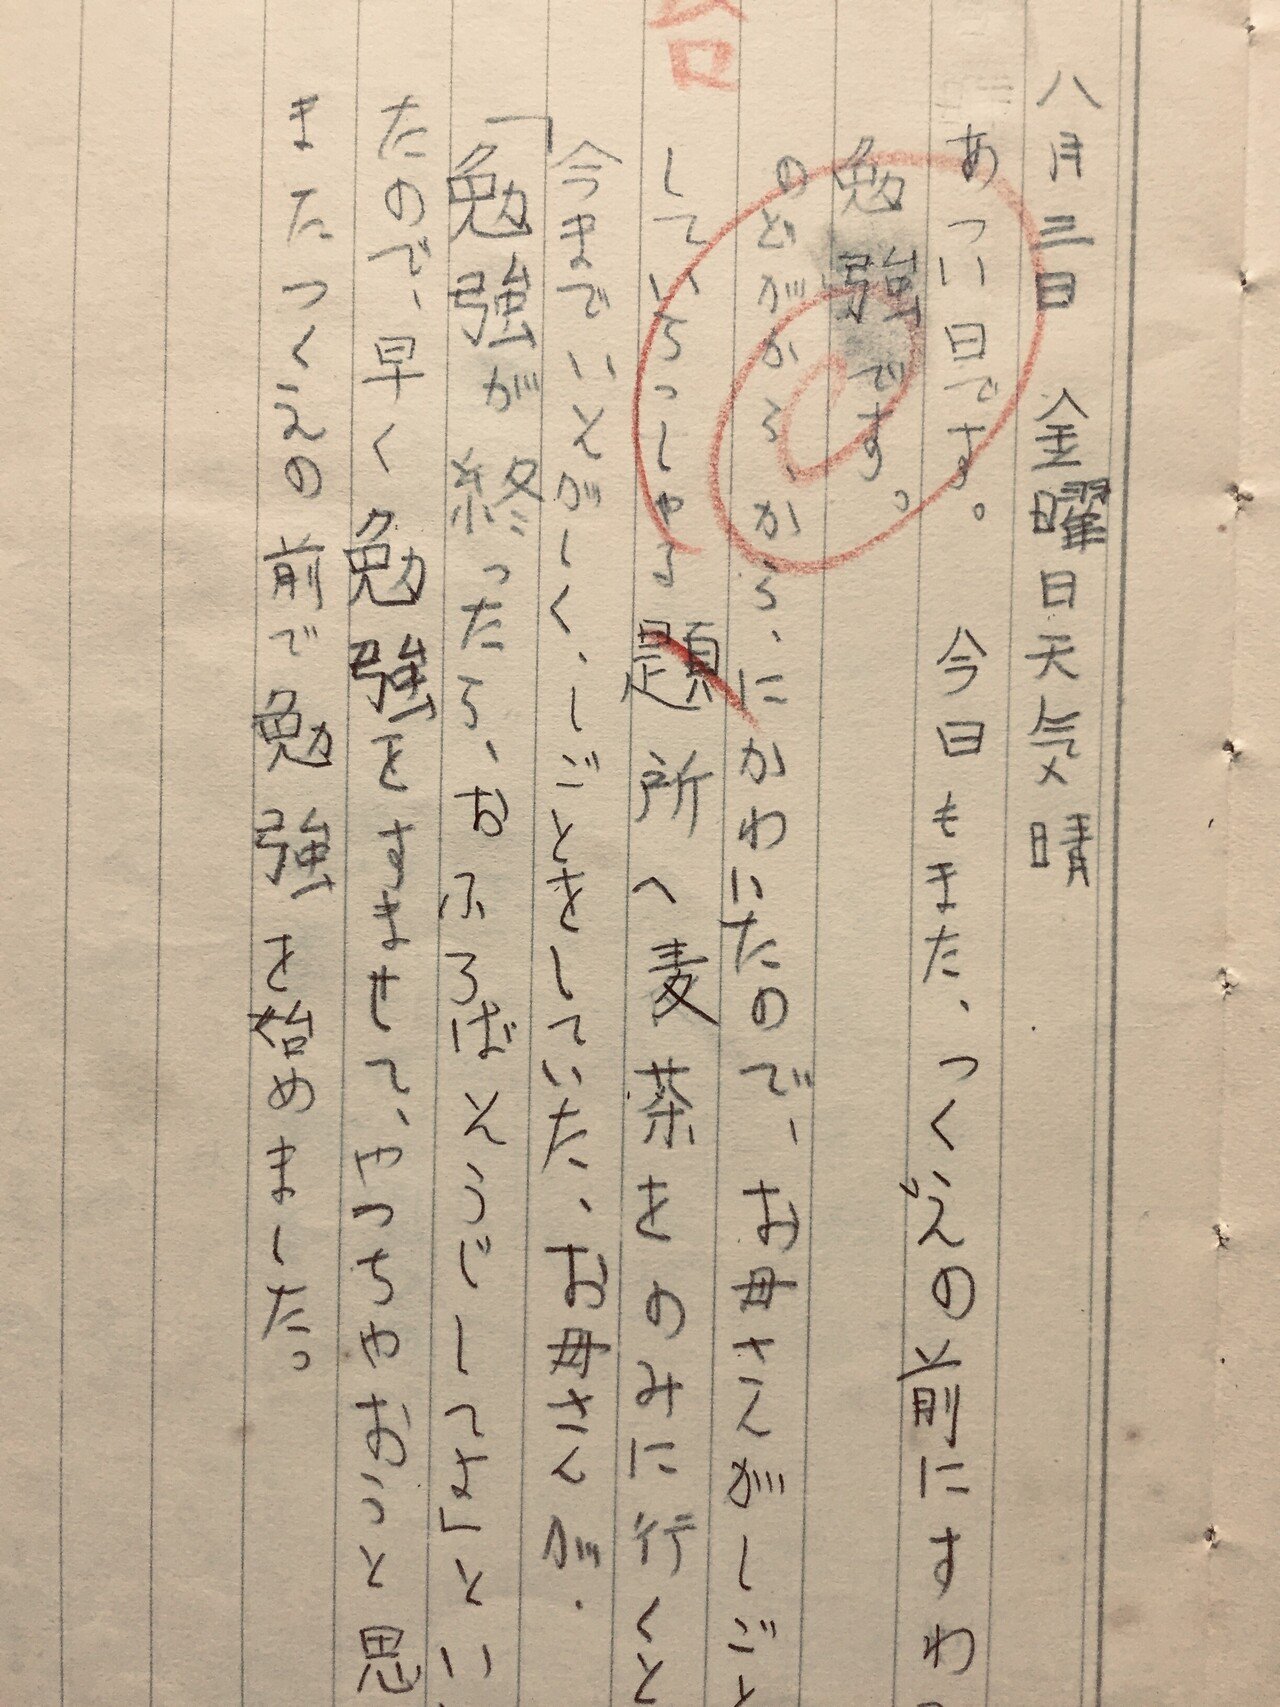 八月三日　金曜日天気晴
あつい日です。　今日もまた、つくえの前にすわ
勉強です。
のどがからからに、かわいたので、お母さんがしごと
していらっしゃる題所へ麦茶をのみに行くと
今までいそがしく、しごとをしていた、お母さんが、
「勉強が終ったら、おふろばそうじしてよ」とい
たので、早く勉強をすませて、やっちゃおうと思
またつくえの前で勉強を始めました。